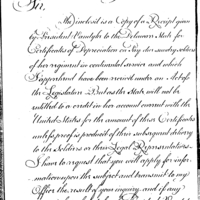 Sir,
The inclosed is a Copy of a Receipt given
by President Vandyke to the Delaware State for
Certificates of Depreciation on Pay due sundry soldiers
of her regiment in continental service and which
I apprehend have been issued under an Act of
the Legislature But as the State will not be
entitled to a credit in her account current with the
United States for the amount of these Certificates
unless proof is produced of their subsequent delivery
to the Soldiers or their Legal Representatives
I have to request that you will apply for infor-
mation upon the subject and transmit to my
Office the result of your inquiry and if any